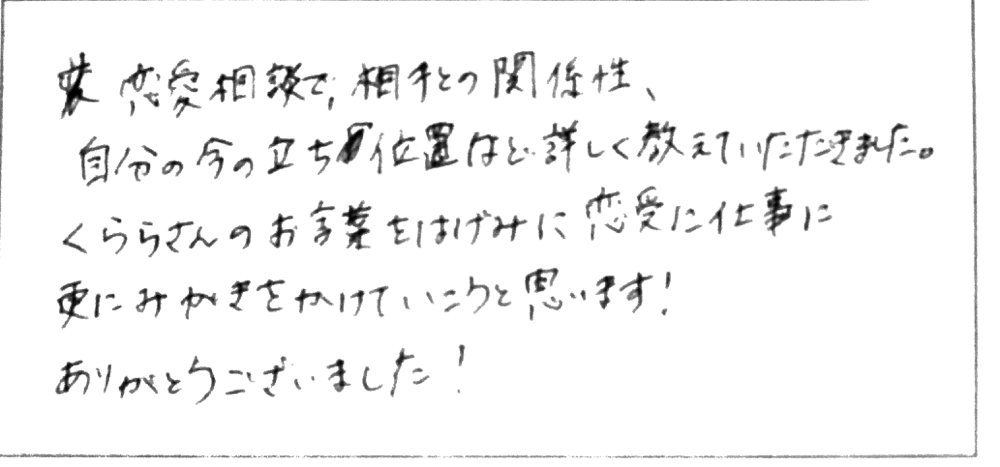 恋愛相談で、相手との関係性、
自分の今の立ち位置など詳しく教えていただきました。
くららさんのお言葉をはげみに恋愛に仕事に
更にみがきをかけていこうと思います！
ありがとうございました！